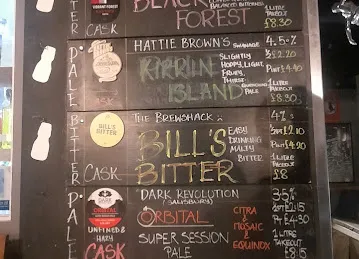 BITTER
CASK
BLACK
FOREST
BALANCED BITTERNESS
1 LITRE
TAKEOUT
£8.30
PALE
CASK
HATTIE BROWN'S SWANAGE
KIRRIN
ISLAND
SLIGHTLY
HOPPY, LIGHT,
FRUITY,
THIRST
QUENCHING
PALE
4.5%
½ £2.20
PINT £4.30
1 LITRE
TAKEOUT
£8.30
BITTER
CASK
BILL'S
BITTER
THE BREWSHACK
BILL'S
BITTER
EASY
DRINKING
MALTY
BITTER
4%
£2.10
PINT £4.20
1 LITRE
TAKEOUT
£8
PALE
DARK
UNFINED &
HAZY
CASK
DARK REVOLUTION
(SALISBURY)
ORBITAL
SUPER SESSION
PALE
CITRA
MOSAIC
&
EQUINOX
3.5%
£2.15
PT £4.30
1 LITRE
TAKEOUT
£8.15